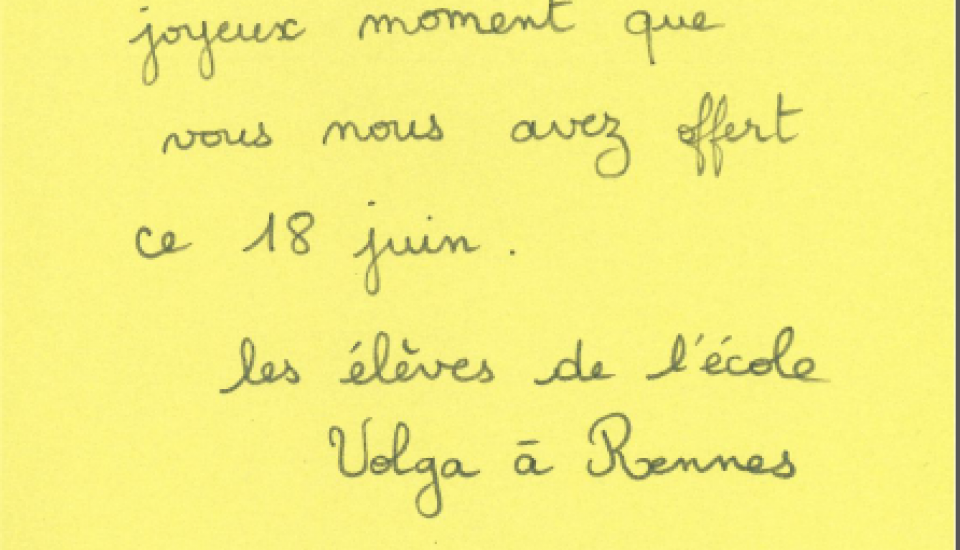 joyeux moment que
vous nous avez offert
ce 18 juin.
les élèves de l'école
Volga à Rennes